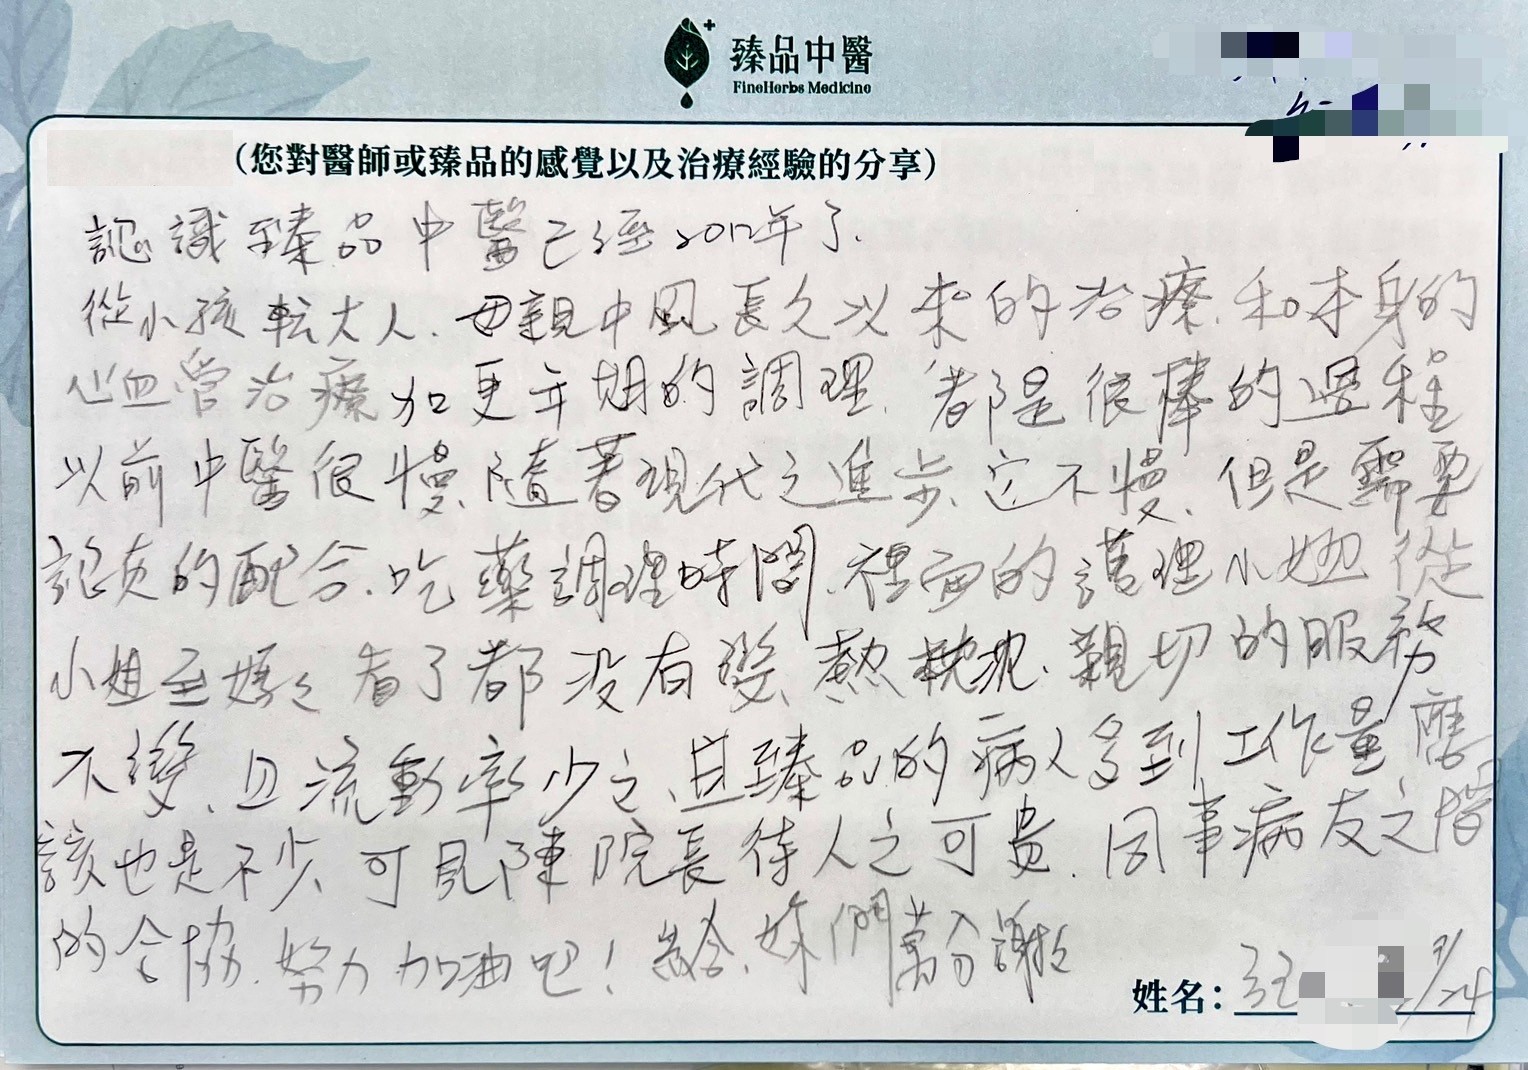 臻品中醫
FineHerbs Medicine
（您對醫師或臻品的感覺以及治療經驗的分享）
認識臻品中醫已經20年了.
從小孩転大人.母親中風長久以來的治療.和本身的
心血管治療加更年期的調理.都是很棒的過程
以前中醫很慢、隨著現代之進步、它不慢、但是需要
認真的配合.吃藥調理時間.裡面的護理小姐從
小姐至媽々看了都沒有變、熱枕.親切的服務
不變、且流動率少之、且臻品的病人多到工作量應
該也是不少、可見陳院長待人之可貴.同事病友之間
的合協.努力加油吧！ 妹們萬分謝々
姓名：